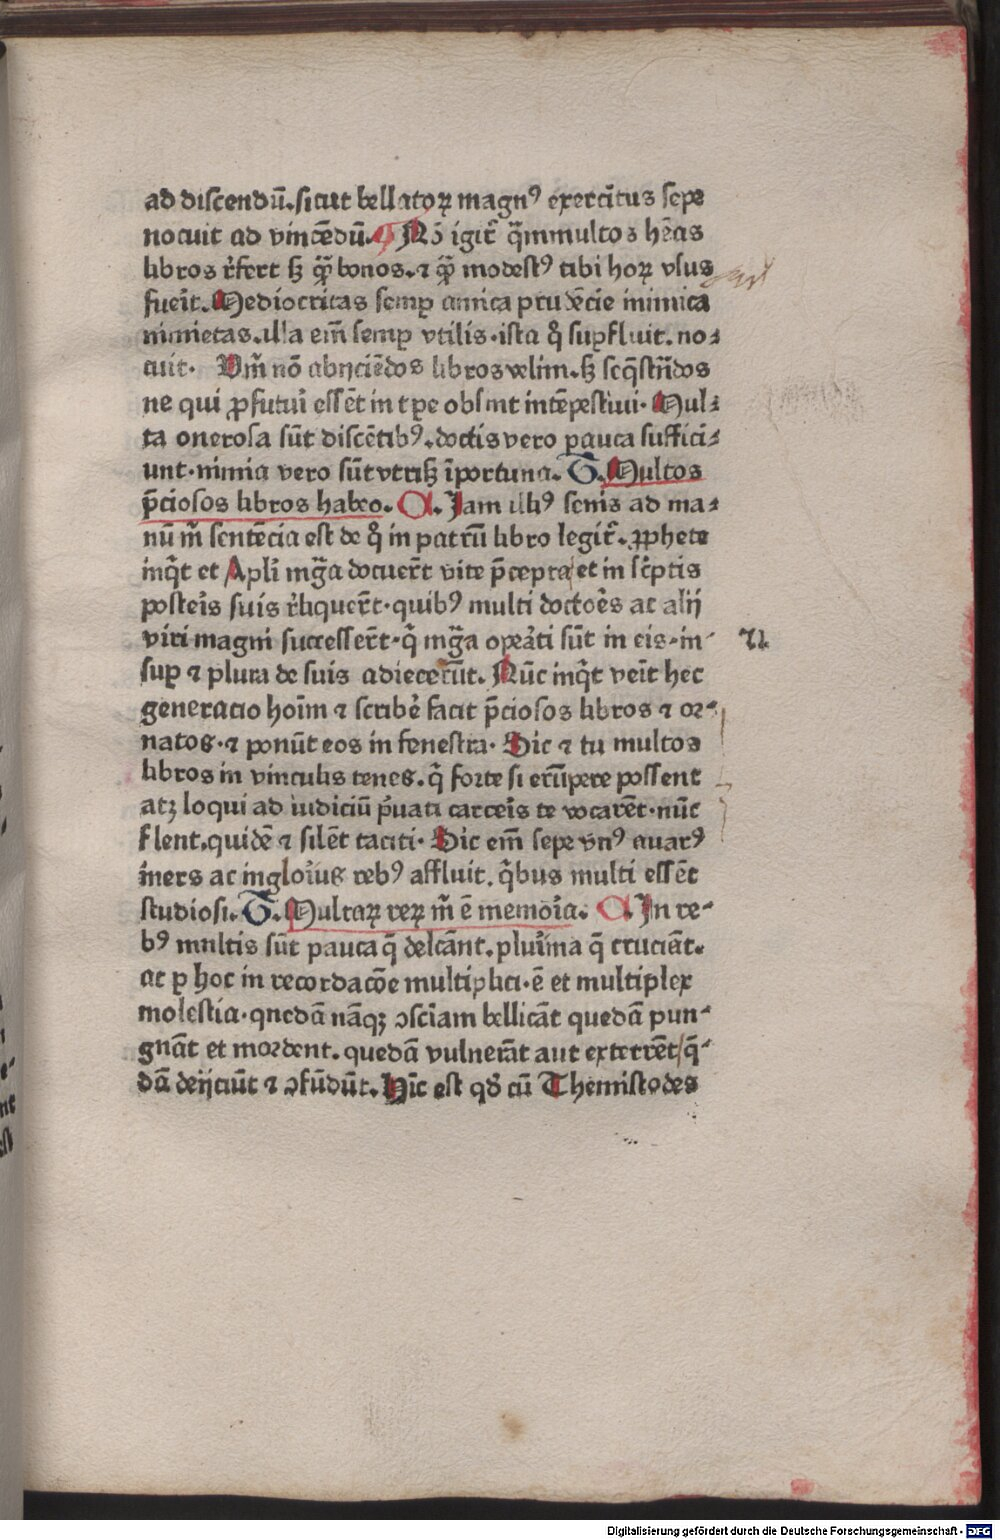 ad discendū.sicut bellatoꝝ magnꝰ exercitus sepe
nocuit ad vincēdū. Nō igiť q̄mmultos hēas
libros řfert sꝫ q̄ꝫ bonos.⁊ q̄ꝫ modestꝰ tibi hoꝝ vsus
fueīt. Mediocritas semꝑ amica prudēcie inimica
nimietas.illa em̄ semꝑ vtilis.ista q̊ suꝑfluit.no⸗
cuit. Vm̄ nō abijciēdos libros velim.sꝫ seq̄strādos
ne qui ꝓfuturi essēt in tꝑe obsint intēpestiui. Mul⸗
ta onerosa sūt discētibꝰ.doctis vero pauca suffici⸗
unt.nimia vero sūt vtriſꝫ īportuna. G. Multos
p̄ciosos libros habeo. A. Jam illiꝰ senis ad ma⸗
nū m̄ sentēcia est de q̊ in patrū libro legiť. ꝓphete
inq̄t et Apl̄i mḡra docuer̄t vite p̄cepta/et in sc̄ptis
posteīs suis řliquer̄t.quibꝰ multi doctoēs ac alij
viri magni successer̄t.q̄ mḡra opeāti sūt in eis.in⸗
suꝑ ⁊ plura de suis adiecerūt. Nūc inq̄t veīt hec
generatio hoīm ⁊ scribē facit p̄ciosos libros ⁊ or⸗
natos.⁊ ponūt eos in fenestra. Sic ⁊ tu multos
libros in vinculis tenes.q̄ forte si erūpere possent
atꝫ loqui ad iudiciū p̄uati carceīs te vocarēt.nūc
flent.quidē ⁊ silēt taciti. Sic em̄ sepe vnꝰ auarꝰ
iners ac inglorīus rebꝰ affluit.q̄bus multi essēt
studiosi. G. Multaꝝ reꝝ m̄ ē memoīa. A. In re⸗
bꝰ multis sūt pauca q̄ delcānt.plurīma q̄ cruciāt.
ac ꝑ hoc in recordacōe multiplici.ē et multiplex
molestia.quedā nāqꝫ ꝯscīam bellicāt quedā pun⸗
gnāt et mordent.quedā vulnerāt aut exterrēt/q̄⸗
dā deijciūt ⁊ ꝯfūdūt. Hīc est qd̄ cū Themistocles
Digitalisierung gefördert durch die Deutsche Forschungsgemeinschaft - DFG